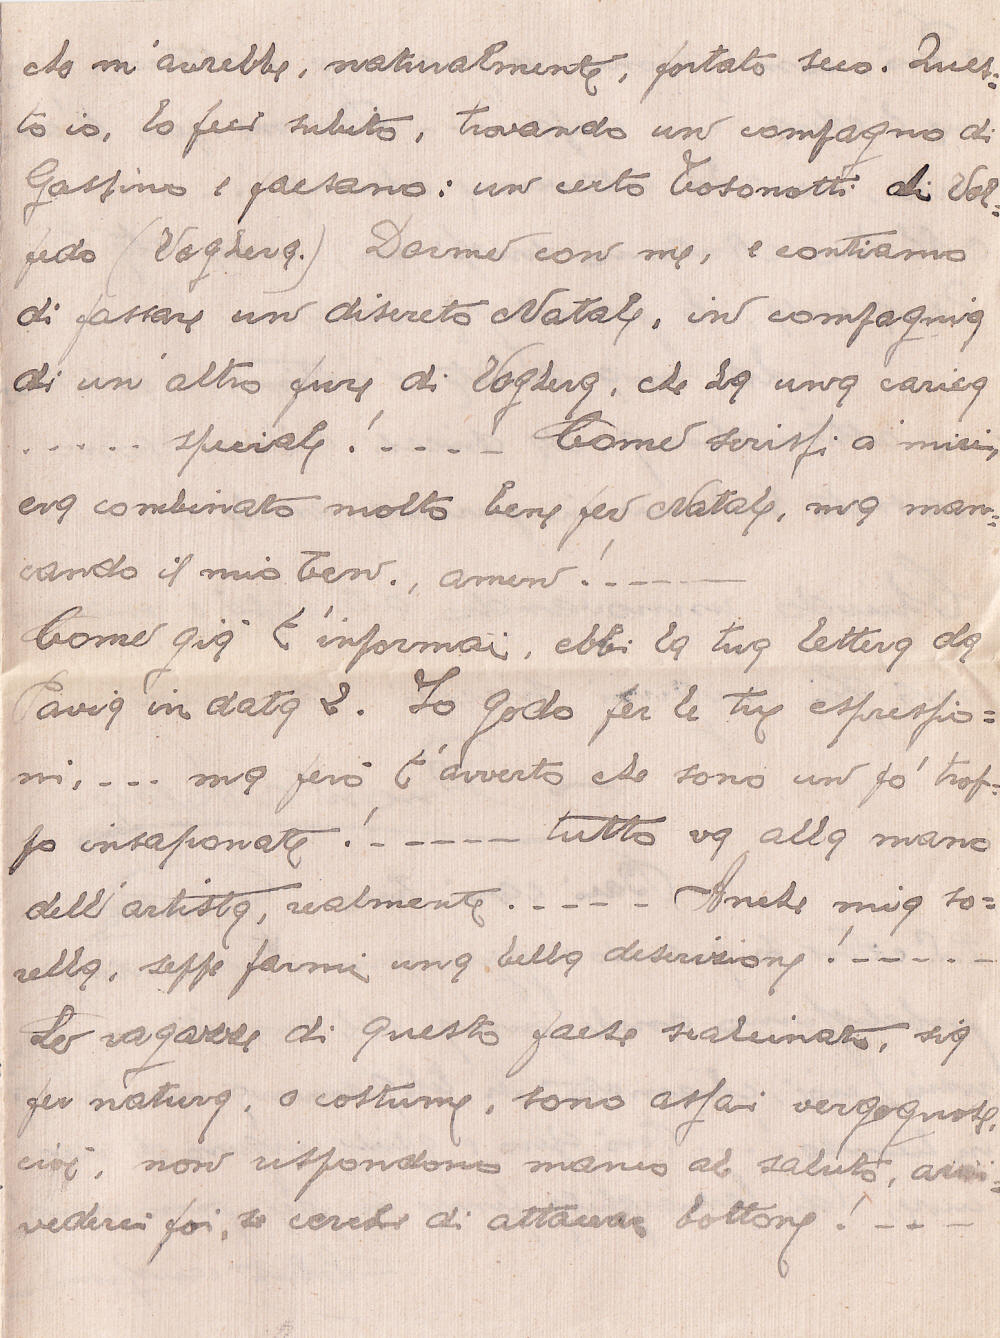 che m'avrebbe, naturalmente, portato seco. Ques=
to io, lo feci subito, trovando un compagno di
Gassino e paesano: un certo Tosonotti di Vol=
pedo (Voghera.) Dorme con me, e contiamo
di passare un discreto Natale, in compagnia
di un'altro pure di Voghera, che ha una carica
..... speciale!.---- Come scrissi a' miei,
era combinato molto bene per Natale, ma man=
cando il mio Ten., amen!.-----
Come già t'informai, ebbi la tua lettera da
Pavia in data 2. Io godo per le tue espressio=
ni,.--- ma però t'avverto che sono un pò trop=
po insaponate!.----- tutto va alla mano
dell'artista, realmente.----- Anche mia so=
rella, seppe farmi una bella descrizione!.-----
Le ragazze di questo paese scalcinato, sia
per natura, o costume, sono assai vergognose,
cioè, non rispondono manco al saluto, arri=
vederci poi, se cerchi di attaccar bottone!.---